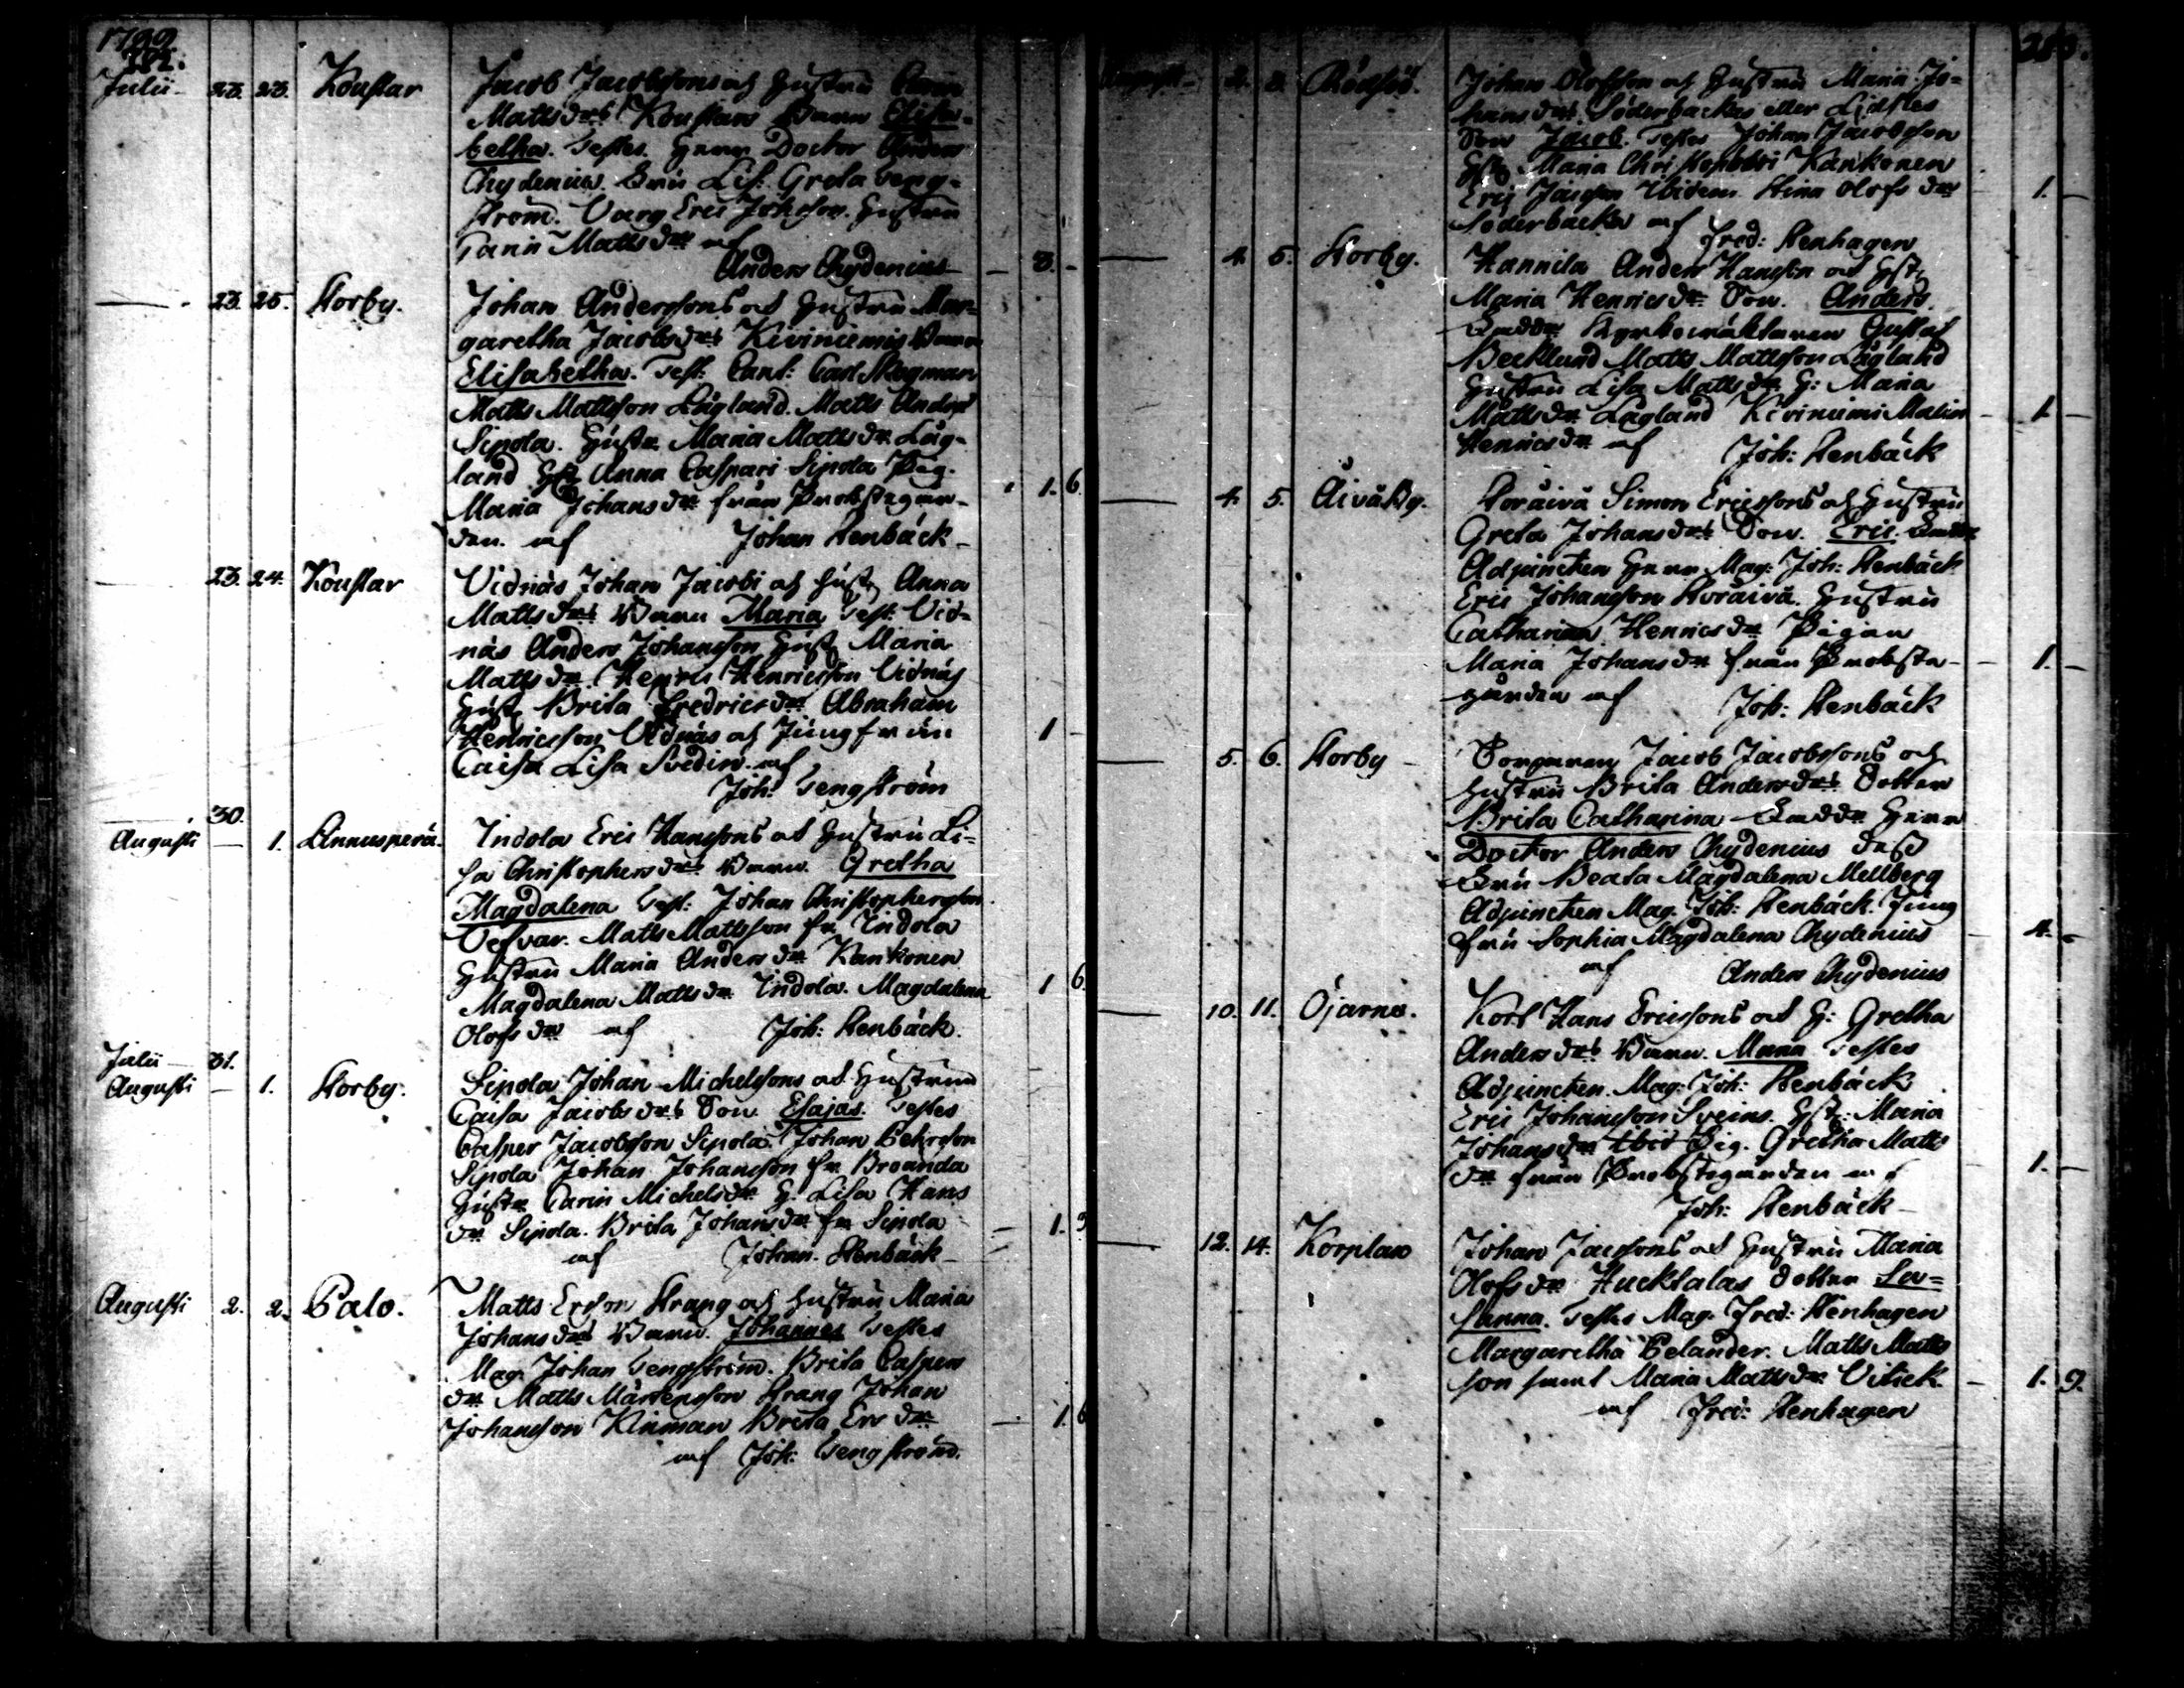 1799
282.
Julii 23. 23. Kouslar Jacob Jacobssons och hustru
Mattsdrs Kouslars Barn Elisa-
betha. Testes. Herr Doctor Anders
Chydenius. Fru Lis: Greta Teng-
ström. Varg Eric Johsson. Hustru
Carin Mattsdr af
Anders Chydenius 3.
23. 25. Storby. Johan Anderssons och Hustru Mar-
garetha Jacobsdrs Kiviniemis Barn
Elisabetha. Test: Cant: Carl Stagman
Matts Mattsson Lågland. Matts Anders
Sipola. Hustr Maria Mattsdr Låg-
land Hstr Anna Caspari Sipola Pig.
Maria Johansdr från Probstegår- 1. 6
den. af Johan Stenbäck
23. 24. Kouslar Vidnäs Johan Jacobi och hustr Anna
Mattsdrs Barn Maria Test. Vid-
näs Anders Johansson hustr Maria
Mattsdr. Henric Henricsson Vidnäs
hustr Brita Fredricsdr Abraham
Henricsson Vidnäs och Jungfrun 1
Caisa Lisa Svedin. af
Joh: Tengström
30.
Augusti 1. Annusperä. Indola Eric Hanssons och Hustru Li-
sa Christophersdrs Barn. Gretha
Magdalena Test: Johan Christophersson
Vefvar. Matts Mattsson fr Indola
Hustru Maria Andersdr Kankonen
Magdalena Mattsdr Indola. Magdalena 1 6.
Olofsdr af Joh: Stenbäck.
Julii 31.
Augusti 1. Storby. Sipola Johan Michelssons och Hustrus
Caisa Jacobsdrs Son Esajas. Testes
Casper Jacobsson Sipola. Johan Pehrsson
Sipola Johan Johansson fr Broända
Hustr Carin Michelsdr H. Lisa Hans
dr Sipola. Brita Johansdr fr Sipola 1. 3
af Johan. Stenbäck
Augusti 2. 2. Palo. Matts Ersson Strang och hustru Maria
Johansdrs Barn. Johannes Testes
Mag. Johan Tengström. Brita Caspers
dr Matts Mårtensson Strang Johan
Johansson Kinman Brita Ersdr 1. 6
af Joh: Tengström.
283.
August 2. 3. Rödsjö. Johan Olofsson och Hustru Maria Jo-
hansdrs Söderbackas eller Lidstes
Son Jacob. Testes Johan Jacobsson
Hstr Maria Kankonen
Eric Jacsson Ibidem. Stina Olofsdr 1.
Söderbacka af Fred: Stenhagen
4. 5. Storby. Kannila Anders Hansson och Hstr
Maria Henricsdr Son. Anders.
Faddr Kyrkowäktaren Gustaf
Becklund Matts Mattsson Lågland
Hustru Lisa Mattsdr H: Maria
Mattsdr Lågland Kiviniemi Malin 1
Henricsdr af Joh: Stenbäck
4. 5. Äiväby. Storäivä Simon Ericssons och Hustru
Greta Johansdrs Son. Eric. Faddr
Adjuncten Herr Mag: Joh: Stenbäck
Eric Johansson Storäivä. Hustru
Catharina Henricsdr Pigan
Maria Johansdr från Probste- 1.
gården af Joh: Stenbäck
5. 6. Storby Torparen Jacob Jacobssons och
hustru Brita Andersdrs Dotter
Brita Catharina Faddr Herr
Doctor Anders Chydenius dess
Fru Beata Magdalena Mellberg
Adjuncten Mag. Joh: Stenbäck. Jung
fru Sophia Magdalena Chydenius 4.
af Anders Chydenius
10. 11. Öjarne. Kort Hans Ericssons och H: Gretha
Andersdrs Barn. Maria Testes
Adjuncten. Mag: Joh: Stenbäck
Eric Johansson Sveins. Hstr: Maria
Johansdr Ibid Pig. Gretha Matts
dr från Probstegården af 1.
Joh: Stenbäck
12. 14. Korplax Johan Jacssons och Hustru Maria
Olofsdr Hucklalas dotter Su-
sanna. Testes Mag. Fred: Stenhagen
Margaretha Pelander. Matts Matts
son samt Maria Mattsdr Vitick. 1. 9.
af Fred: Stenhagen